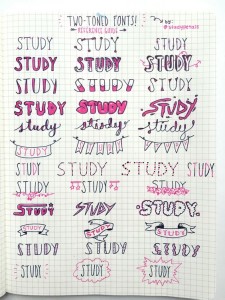 TWO-TONED FONTS!
REFERENCE GUIDE
by:
STUDY STUDY STUDY
STUDY STUDY STUDY
STUDY STUDY STUDY
STUDY STUDY STUDY
study study study
STUDY
STUDY STUDY STUDY STUDY
STUDY STUDY STUDY
STUDY STUDY STUDY
STUDY STUDY STUDY
STUDY STUDY STUDY
STUDY STUDY STUDY